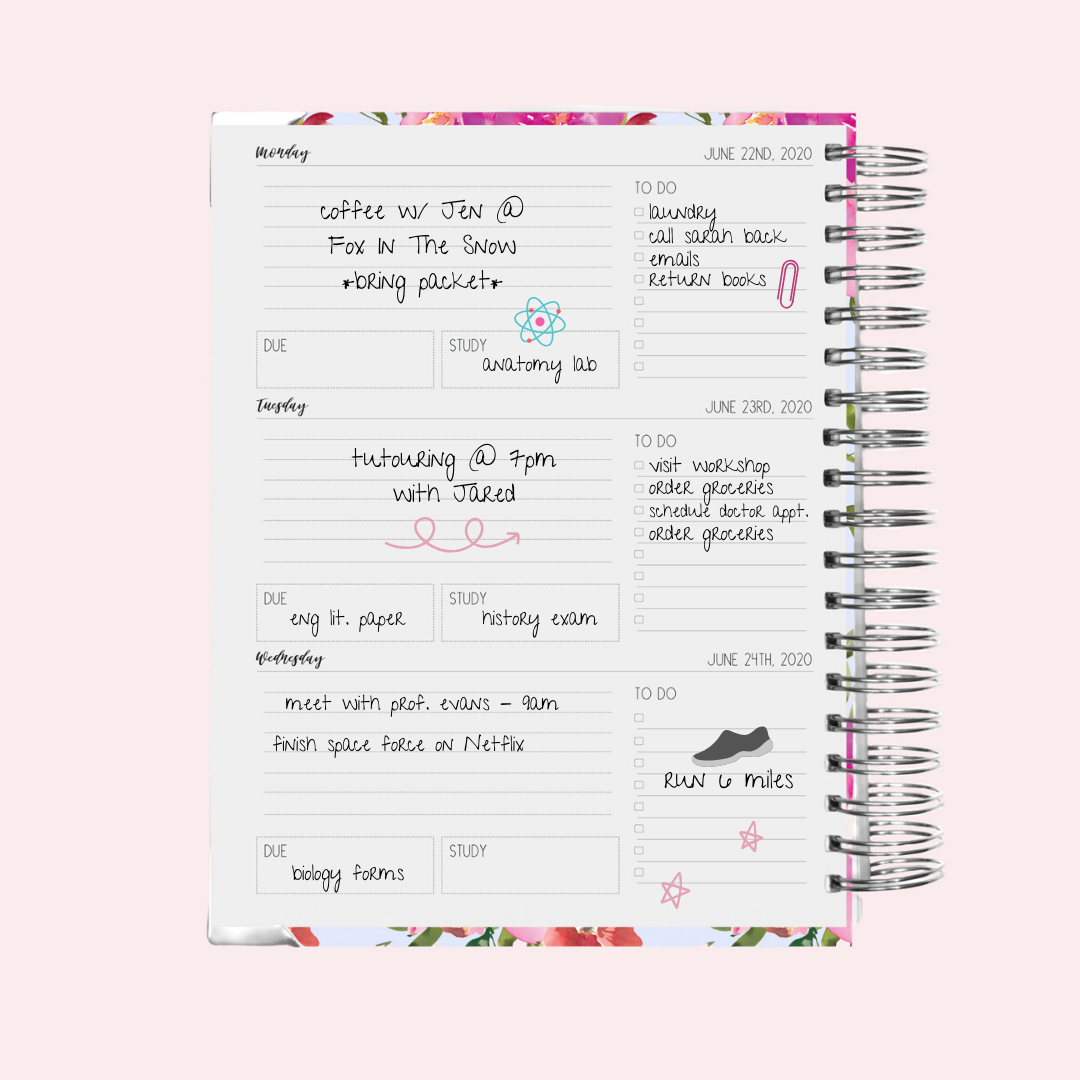 Monday
JUNE 22ND, 2020
coffee w/ Jen @
Fox In The Snow
*bring packet*
TO DO
laundry
call sarah back
emails
return books
DUE
STUDY
anatomy lab
Tuesday
JUNE 23RD, 2020
tutouring @ 7pm
with Jared
TO DO
visit workshop
order groceries
schedule doctor appt.
order groceries
DUE
eng lit. paper
STUDY
history exam
Wednesday
JUNE 24TH, 2020
meet with prof. evans - 9am
finish space force on Netflix
TO DO
RUN 6 miles
DUE
biology forms
STUDY